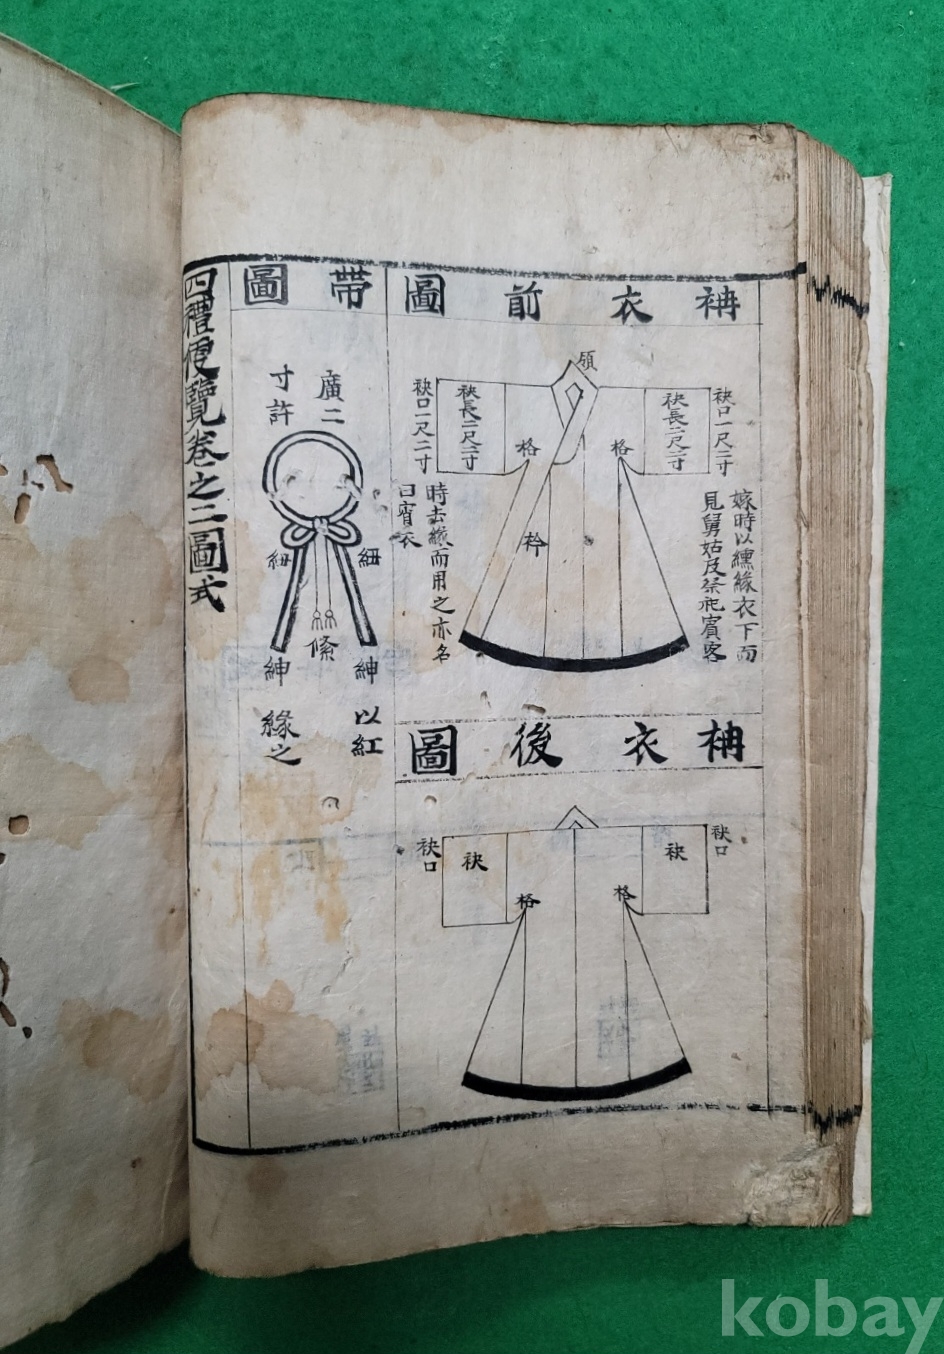 袡衣前圖
領
袂口一尺二寸
袂長二尺二寸
袂長二尺二寸
袂口一尺二寸
袼
袼
衿
嫁時以纁緣衣下而
見舅姑及祭祀賓客
時去纁而用之亦名
曰宵衣
袡衣後圖
袂口
袂
袂
袂口
袼
袼
帶圖
廣二
寸許
紐
紐
絛
紳
紳
以紅
緣之
四禮便覽卷之二圖式
kobay